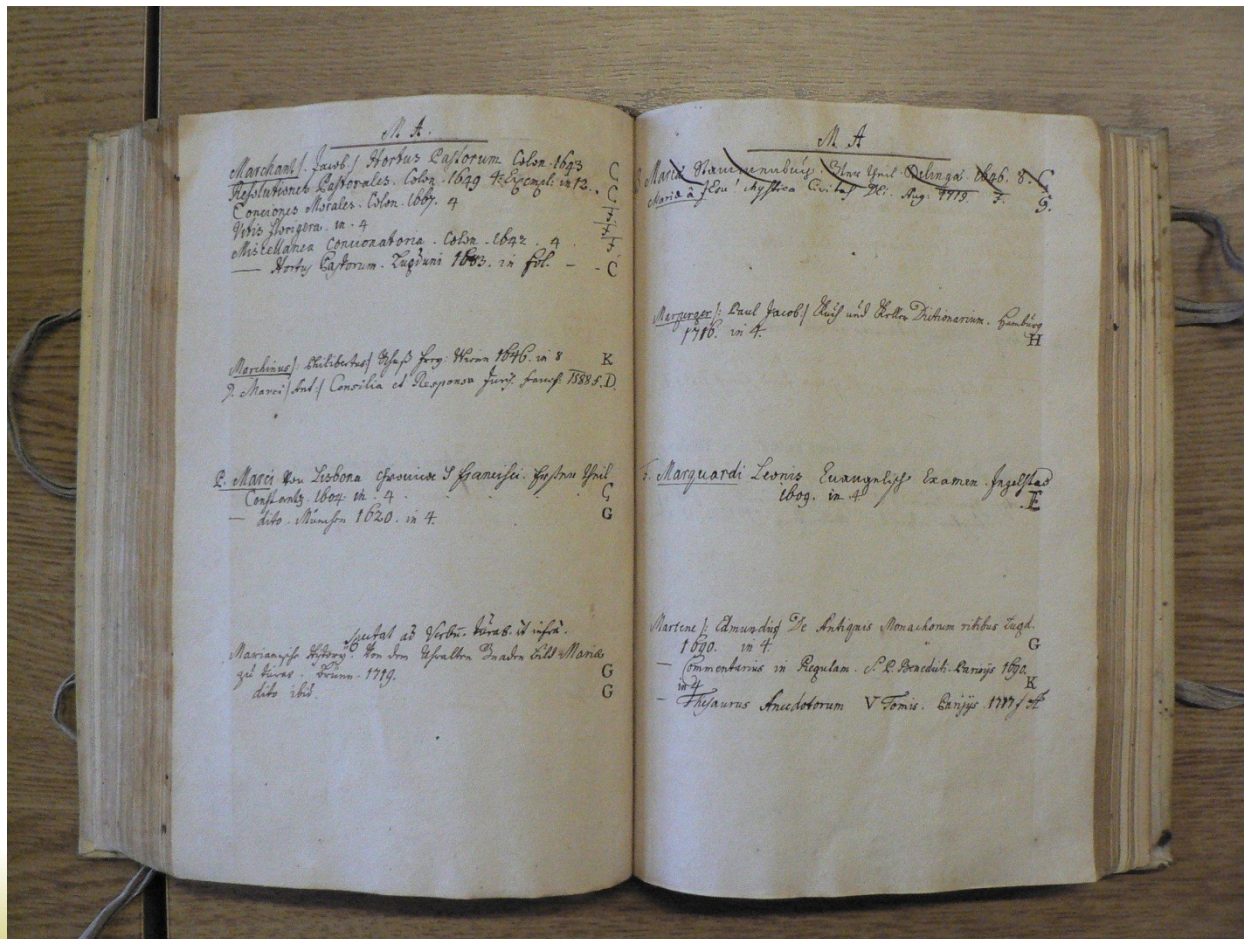 M A.
Marchant /. Jacob. / Hortus Pastorum Colon. 1643 C
Resolutiones Pastorales. Colon. 1649 4. Exempl: in 12. C
Conciones Morales. Colon. 1667. 4
Vitis florigera. in. 4
Miscellanea Concionatoria. Colon. 1642. 4.
— Hortus Pastorum. Lugduni 1683. in fol. — - C
Marchinus /: Philibertus / 1646. in 8 K
Marci / Ant: / Consilia et Responsa Jurid. francof. 1588 f. D.
P. Marci von Lisbona Chronica S Francisci. Erster Theil
Constantz. 1604. in. 4. G
— dito. München 1620. in 4. G
Spectat ad Verbu. Turas. ut infra.
Marianische History. Von dem Uhralten Gnaden bild Mariae
zu Turas. Brünn. 1719. G
dito ibid. G
M A
Theil Delingae. 1646. 8.
Maria à Jesu Mystica Civitas Dei. Aug: 1719. G.
Marperger /: Paul Jacob. / Kuch und Keller Dictionarium. Hamburg
1716. in 4. H
Marquardi Leonis Evangelisch Examen. Ingolstad
1609. in 4 E
Martene /: Edmundus De Antiquis Monachorum ritibus Lugd.
1690. in 4. G
— Commentarius in Regulam. S. P. Benedicti. Parisijs 1690.
in 4 K
— Thesaurus Anecdotorum V Tomis. Parisijs 1717 f A